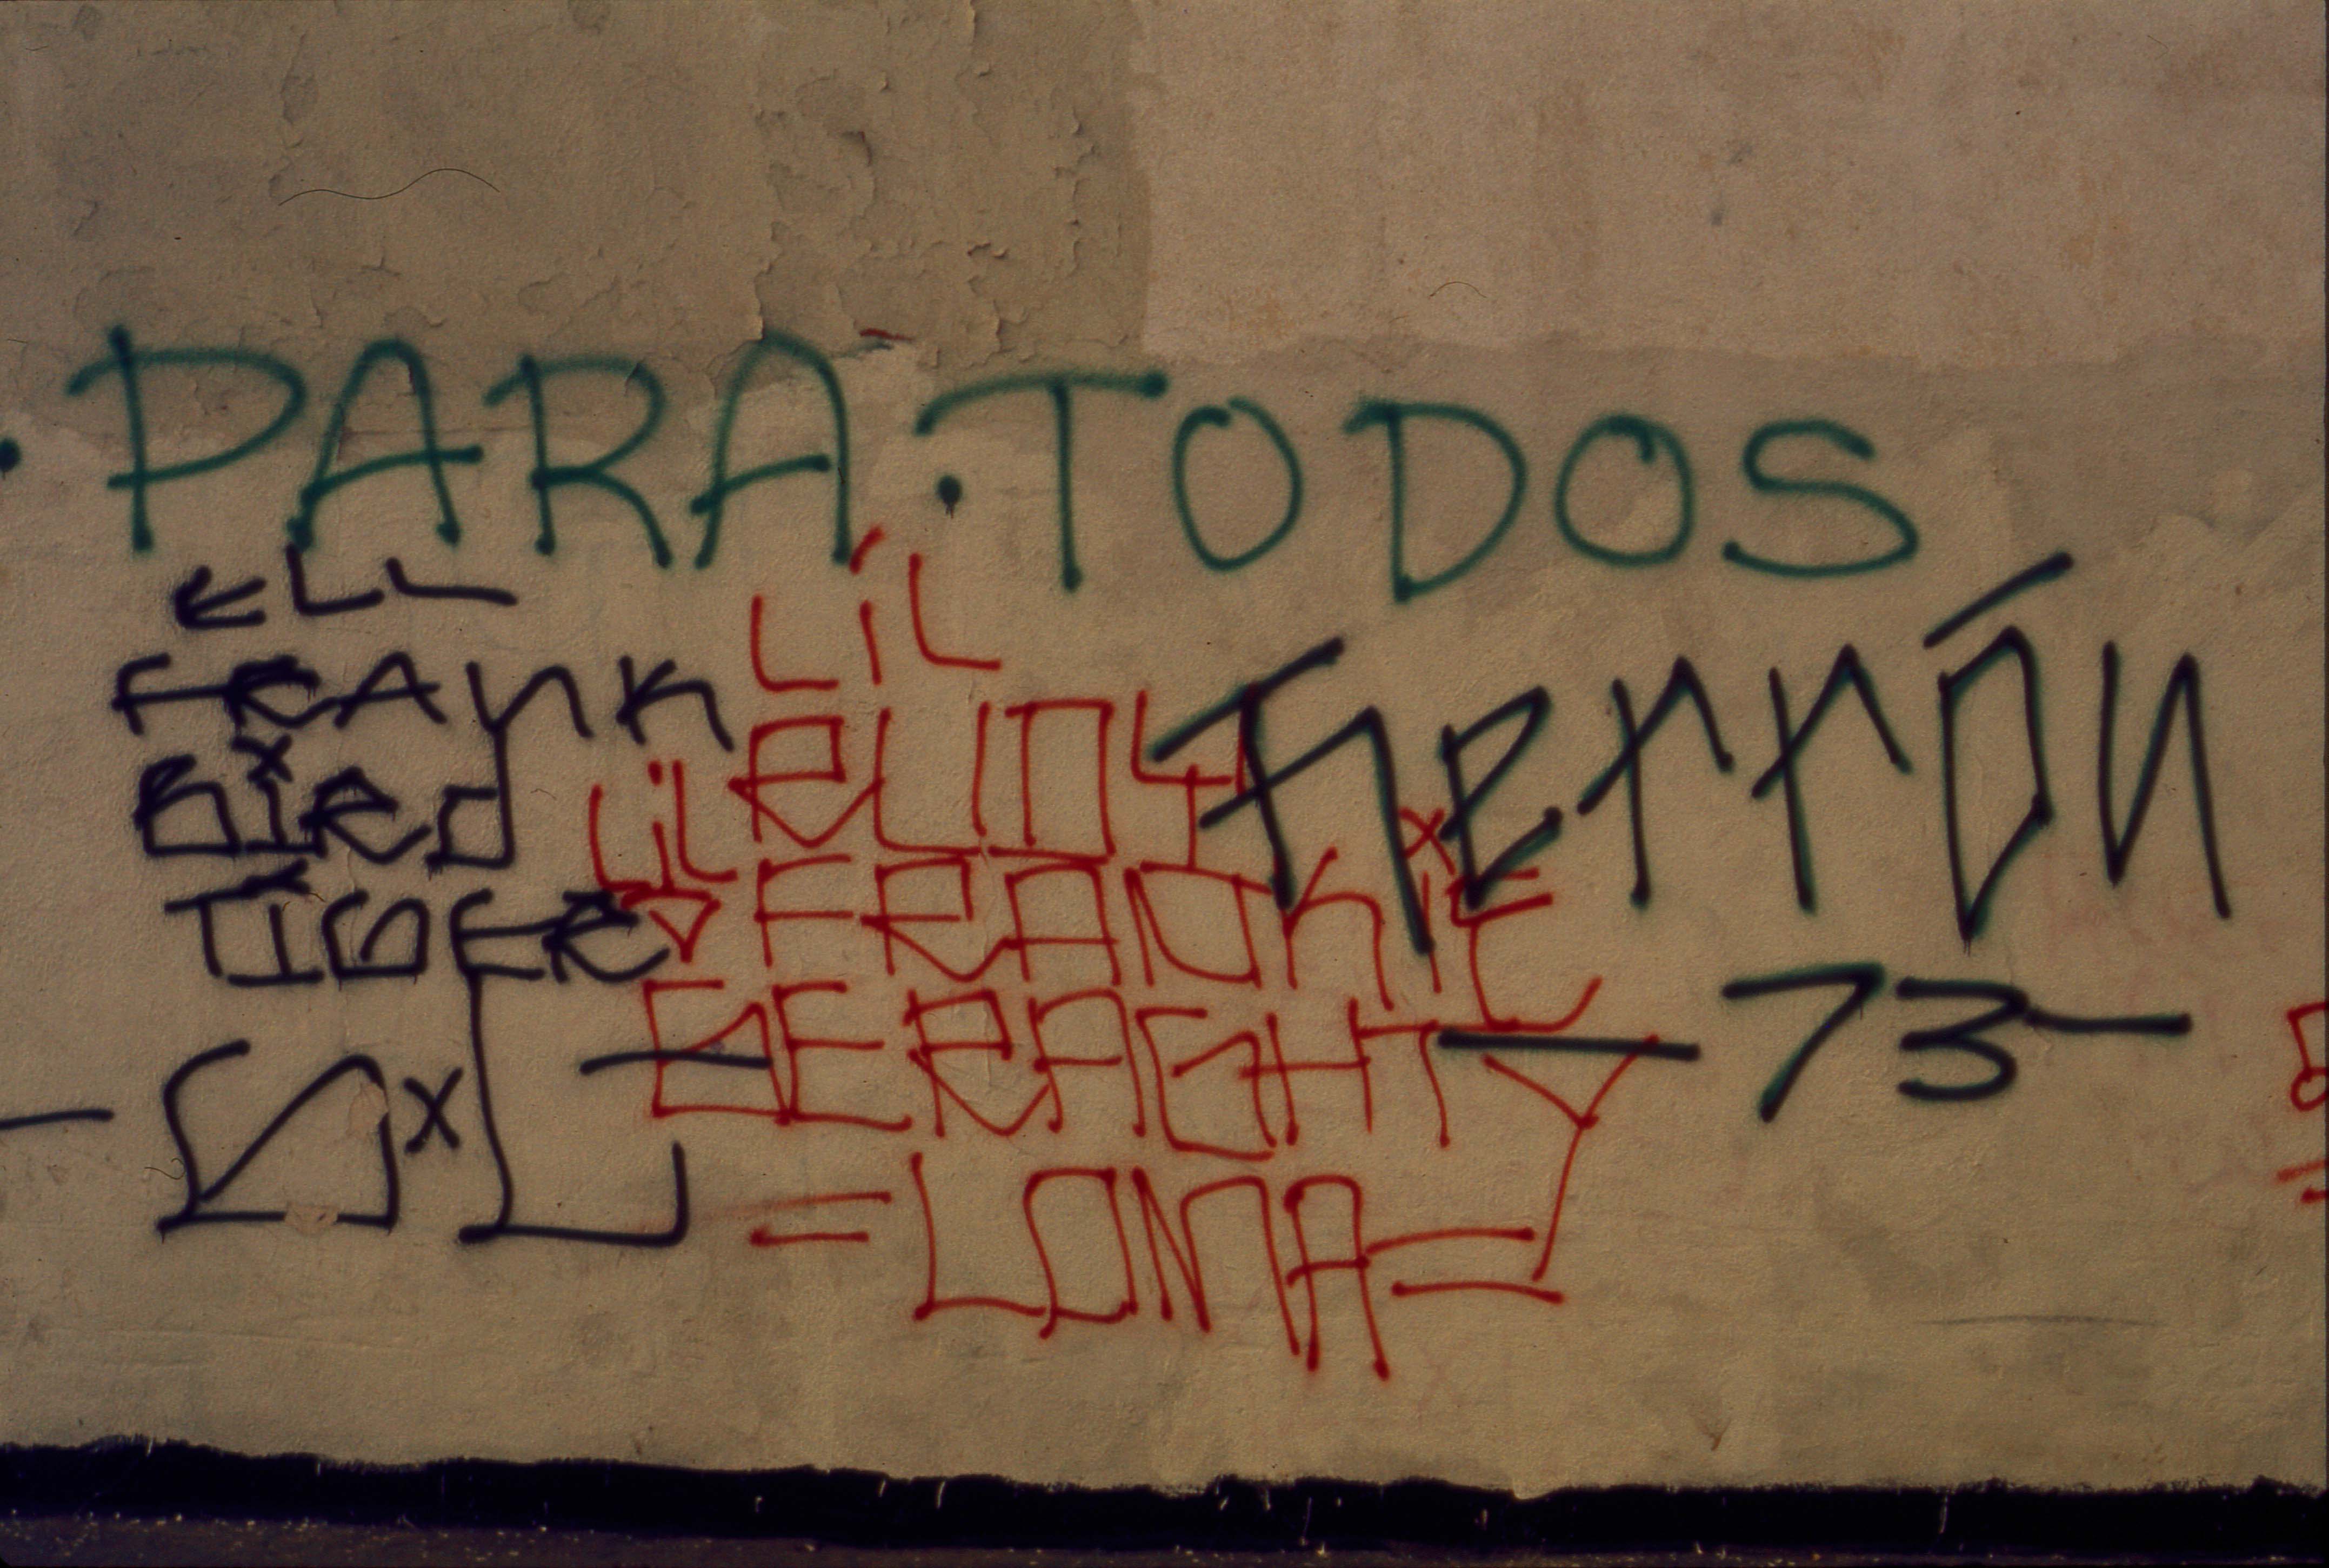 PARA·TODOS
ELL
FRANK
BIRD
TIGER
LIL
RUDY
LIL
FRANKIE
GERAGHTY
=LOMA=
Fierrón
-73-